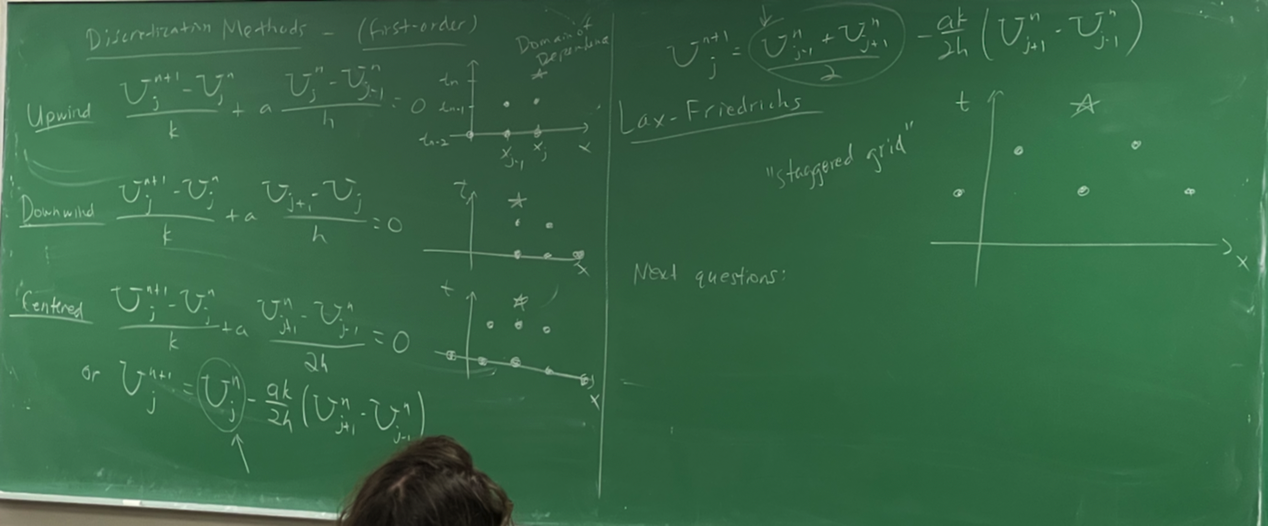 Discretization Methods - (first-order)
Domain of Dependence
Upwind (U_j^{n+1} - U_j^n)/k + a (U_j^n - U_{j-1}^n)/h = 0
t_n
t_{n-1}
t_{n-2}
x_{j-1} x_j x
Downwind (U_j^{n+1} - U_j^n)/k + a (U_{j+1} - U_j)/h = 0
t
x
Centered (U_j^{n+1} - U_j^n)/k + a (U_{j+1}^n - U_{j-1}^n)/2h = 0
t
x
or U_j^{n+1} = U_j^n - ak/2h (U_{j+1}^n - U_{j-1}^n)
U_j^{n+1} = (U_{j-1}^n + U_{j+1}^n)/2 - ak/2h (U_{j+1}^n - U_{j-1}^n)
Lax-Friedrichs
"staggered grid"
t
x
Next questions: